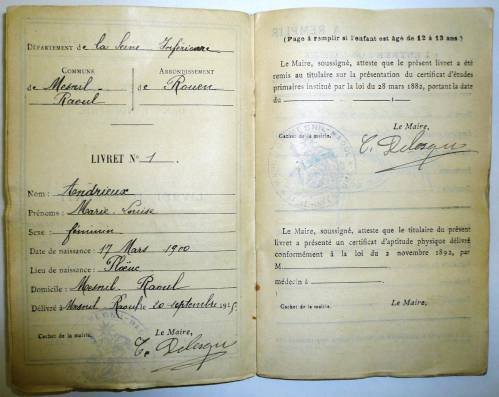 DÉPARTEMENT de la Seine Inférieure
COMMUNE
de Mesnil-
Raoul
ARRONDISSEMENT
de Rouen
LIVRET N° 1.
Nom : Andrieux
Prénoms : Marie Louise
Sexe : féminin
Date de naissance : 17 Mars 1900
Lieu de naissance : Plœuc
Domicile : Mesnil-Raoul
Délivré à Mesnil Raoul le 20 septembre
Le Maire,
Cachet de la mairie.
(Page à remplir si l'enfant est âgé de 12 à 13 ans)
Le Maire, soussigné, atteste que le présent livret a été
remis au titulaire sur la présentation du certificat d'études
primaires institué par la loi du 28 mars 1882, portant la date
du
Le Maire,
Cachet de la mairie.
Le Maire, soussigné, atteste que le titulaire du présent
livret a présenté un certificat d'aptitude physique délivré
conformément à la loi du 2 novembre 1892, par
M
médecin à
Le Maire,
Cachet de la mairie.